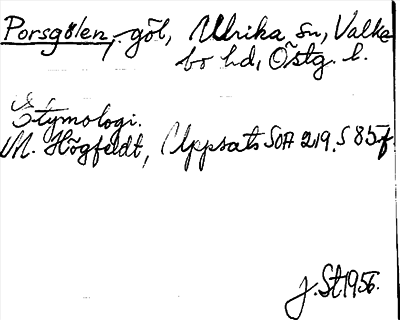 Porsgölen, göl, Ulrika sn, Valke
bo hd, Östg. l.
Etymologi.
M. Högfeldt, Uppsats SOA 219. S 85f.
J. St 1956.